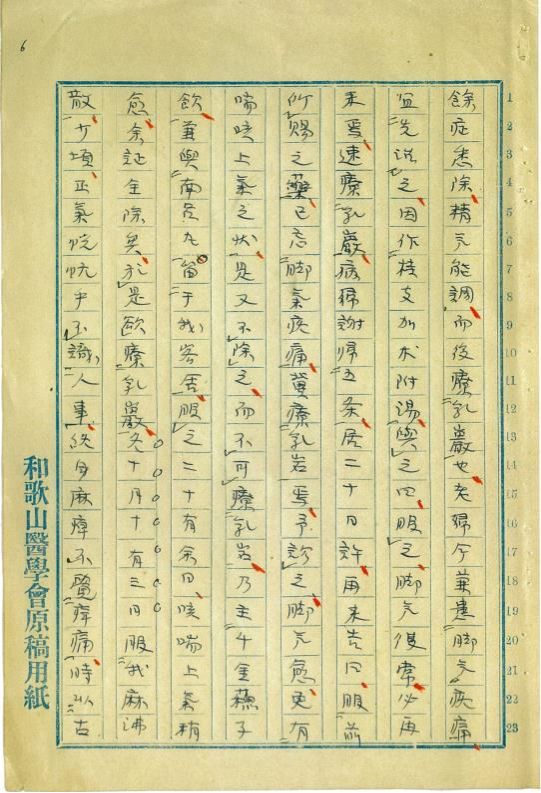 6
1
2
3
4
5
6
7
8
9
10
11
12
13
14
15
16
17
18
19
20
21
22
23
餘症悉除精气能調而後療乳巖也老婦今兼患脚气疾痛
宜先治之因作桂支加朮附湯與之曰服之脚气復常必再
来焉速療乳巖病婦謝帰五条居二十日許再来告曰服前
所賜之藥已忘脚氣疾痛冀療乳岩焉予診之脚气愈更有
喘咳上氣之状是又不除之而不可療乳岩乃主千金蘓子
飲兼與南呂丸留于我客舎服之二十有余日咳喘上氣稍
愈余証全除矣於是欧療乳巖冬十月十有三日服我麻沸
散少頃正氣恍忙中不識人事終身麻痺不覺痺痛時以古
和歌山醫學會原稿用紙